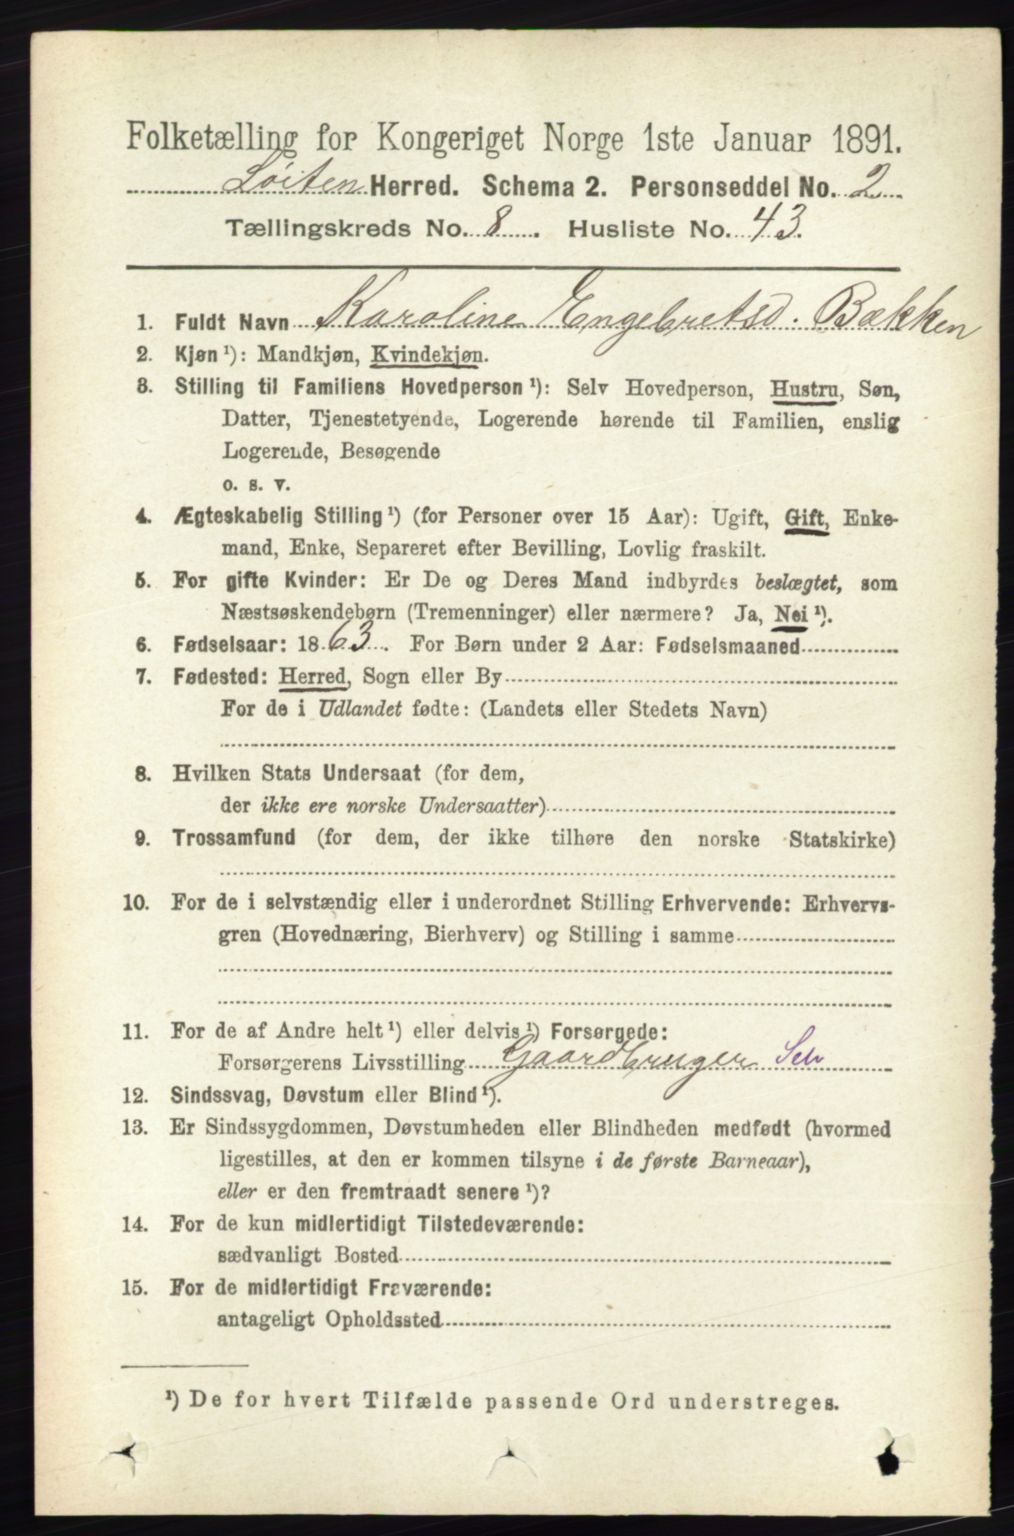 Folketælling for Kongeriget Norge 1ste Januar 1891.
Løiten Herred. Schema 2. Personseddel No. 2
Tællingskreds No. 8. Husliste No. 43.
1. Fuldt Navn Karoline Engebretsd. Bækken
2. Kjøn¹): Mandkjøn, Kvindekjøn.
3. Stilling til Familiens Hovedperson¹): Selv Hovedperson, Hustru, Søn,
Datter, Tjenestetyende, Logerende hørende til Familien, enslig
Logerende, Besøgende
o. s. v.
4. Ægteskabelig Stilling¹) (for Personer over 15 Aar): Ugift, Gift, Enke-
mand, Enke, Separeret efter Bevilling, Lovlig fraskilt.
5. For gifte Kvinder: Er De og Deres Mand indbyrdes beslægtet, som
Næstsøskendebørn (Tremenninger) eller nærmere? Ja, Nei¹).
6. Fødselsaar: 1863. For Børn under 2 Aar: Fødselsmaaned
7. Fødested: Herred, Sogn eller By
For de i Udlandet fødte: (Landets eller Stedets Navn)
8. Hvilken Stats Undersaat (for dem,
der ikke ere norske Undersaatter)
9. Trossamfund (for dem, der ikke tilhøre den norske Statskirke)
10. For de i selvstændig eller i underordnet Stilling Erhvervende: Erhvervs-
gren (Hovednæring, Bierhverv) og Stilling i samme
11. For de af Andre helt¹) eller delvis¹) Forsørgede:
Forsørgerens Livsstilling Gaardbruger Selv
12. Sindssvag, Døvstum eller Blind¹).
13. Er Sindssygdommen, Døvstumheden eller Blindheden medfødt (hvormed
ligestilles, at den er kommen tilsyne i de første Barneaar),
eller er den fremtraadt senere¹)?
14. For de kun midlertidigt Tilstedeværende:
sædvanligt Bosted
15. For de midlertidigt Fraværende:
antageligt Opholdssted
¹) De for hvert Tilfælde passende Ord understreges.